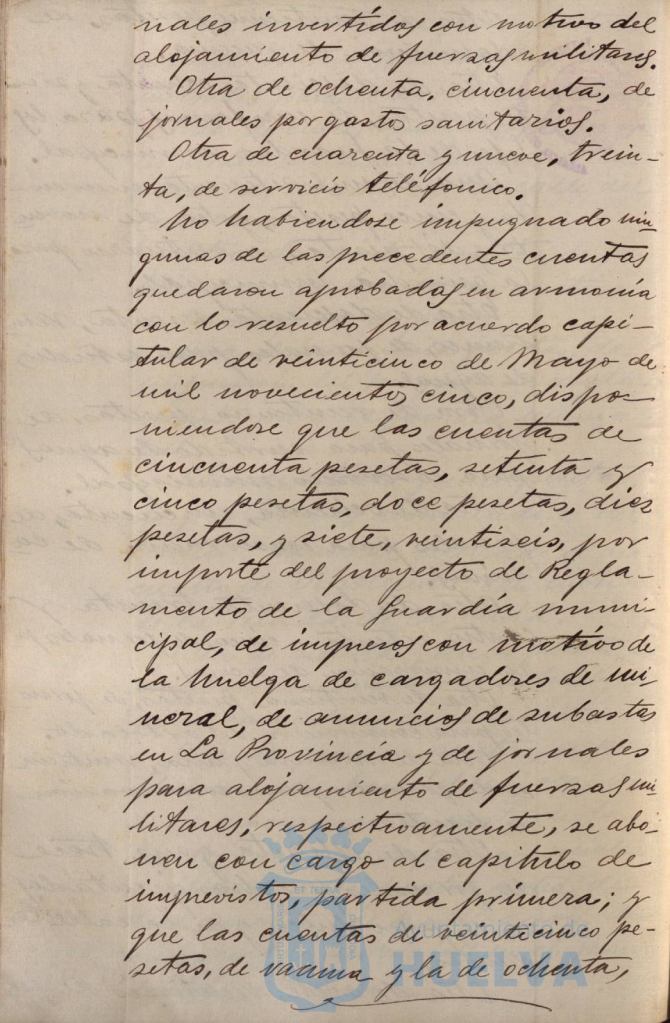 nales invertidos con motivo del
alojamiento de fuerzas militares.
Otra de ochenta, cincuenta, de
jornales por gastos sanitarios.
Otra de cuarenta y nueve, trein-
ta, de servicio telefonico.
No habiendose impugnado nin-
gunas de las precedentes cuentas
quedaron aprobadas en armonia
con lo resuelto por acuerdo capi-
tular de veinticinco de Mayo de
mil novecientos cinco, dispo-
niendose que las cuentas de
cincuenta pesetas, setenta y
cinco pesetas, doce pesetas, diez
pesetas, y siete, veintiseis, por
importe del proyecto de Regla-
mento de la Guardia muni-
cipal, de impresos con motivo de
la huelga de cargadores de mi-
neral, de anuncios de subastas
en La Provincia y de jornales
para alojamiento de fuerzas mi-
litares, respectivamente, se abo-
nen con cargo al capitulo de
imprevistos, partida primera; y
que las cuentas de veinticinco pe-
setas, de vacuna y la de ochenta,
Ayuntamiento de
HUELVA